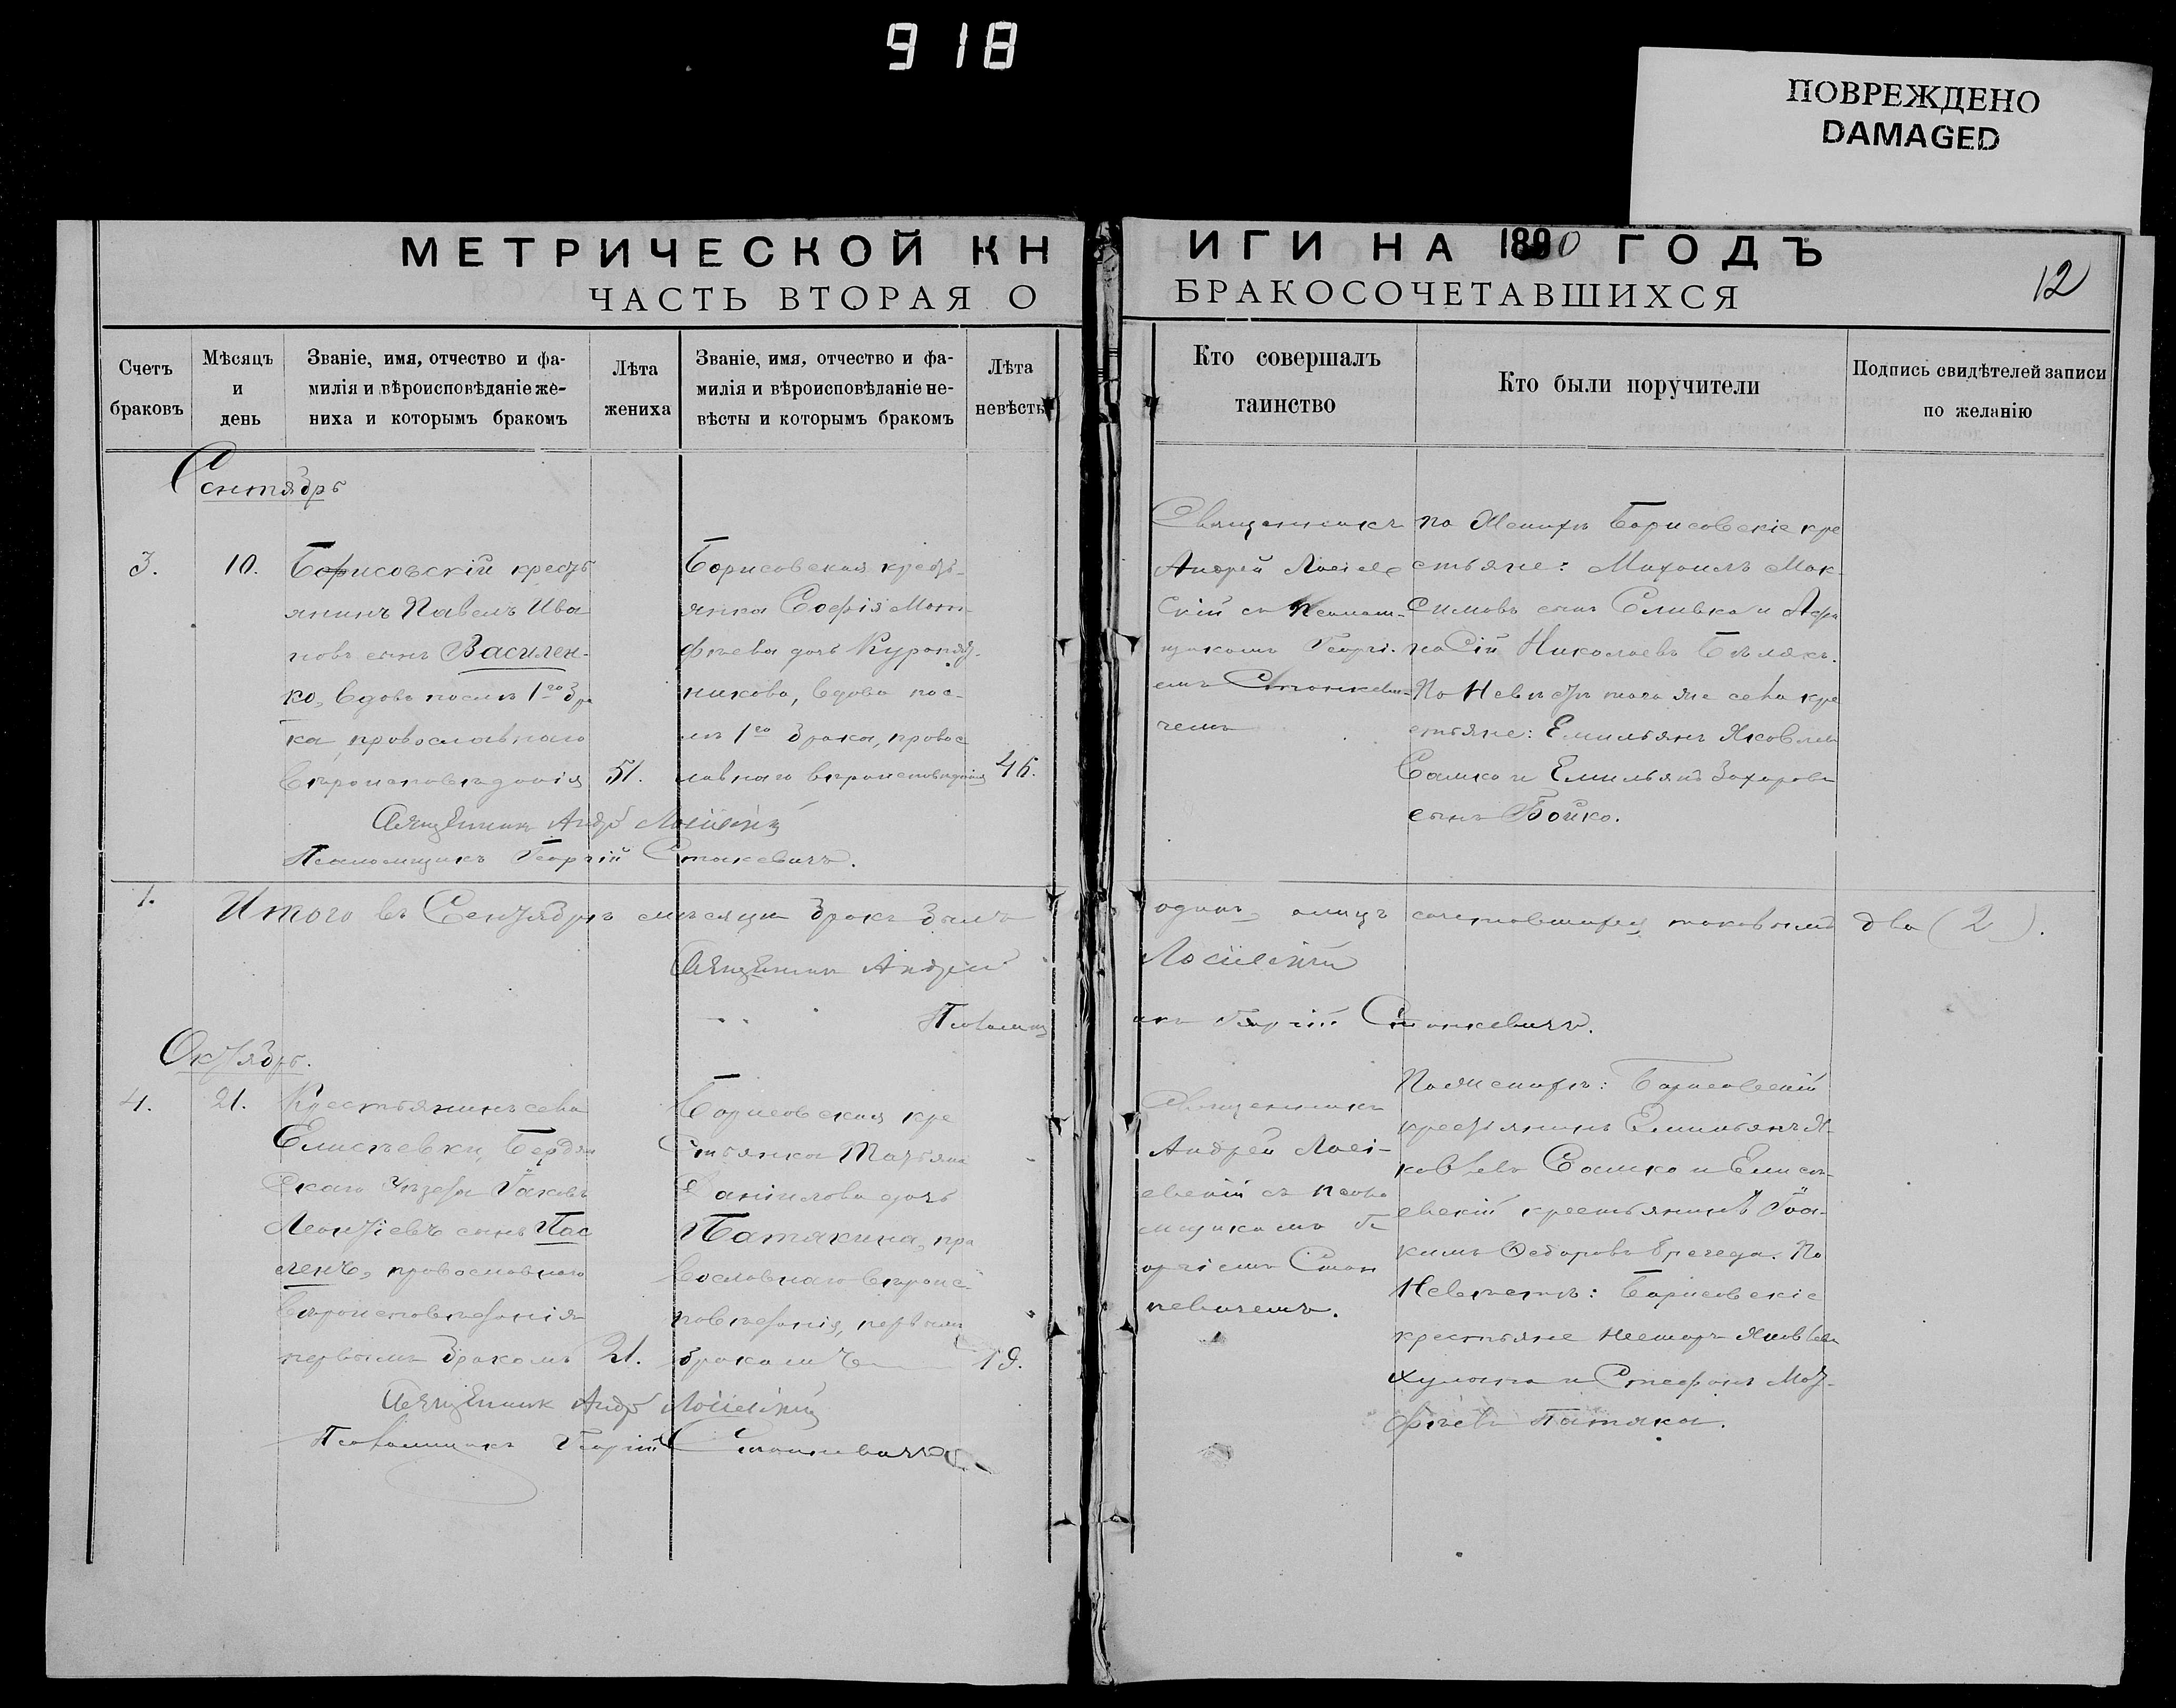 918
ПОВРЕЖДЕНО
DAMAGED
МЕТРИЧЕСКОЙ КНИГИ НА 1890 ГОДЪ
ЧАСТЬ ВТОРАЯ О БРАКОСОЧЕТАВШИХСЯ
12
Счетъ
браковъ
Мѣсяцъ
и
день
Званіе, имя, отчество и фа-
милія и вѣроисповѣданіе же-
ниха и которымъ бракомъ
Лѣта
жениха
Званіе, имя, отчество и фа-
милія и вѣроисповѣданіе не-
вѣсты и которымъ бракомъ
Лѣта
невѣсты
Кто совершалъ
таинство
Кто были поручители
Подпись свидѣтелей записи
по желанію
Сентябрь
3.
10.
Борисовскій кресть
янинъ Павелъ Ива
новъ сынъ Василен-
ко, вдовъ послѣ 1го бра
ка, православнаго
вѣроисповѣданія
51.
Борисовская кресть-
янка Софія Мат-
фѣева дочь
никова, вдова пос-
лѣ 1го брака, правос
лавнаго вѣроисповѣданія
46.
Священникъ
Андрей
скій съ псалом-
щикомъ Георгі-
емъ Станкеви-
чемъ
по Женихѣ Борисовскіе кре
стьяне: Михаилъ Мак-
симовъ сынъ Сливка и Афа
насій Николаевъ Бѣлякъ.
По Невѣстѣ того же села кре
стьяне: Емильянъ Яковлев
Сашко и Емильянъ Захаровъ
сынъ Бойко.
Священникъ Андр
Псаломщикъ Георгій Станкевичъ.
1.
Итого въ Сентябрѣ мѣсяцѣ бракъ былъ одинъ, а лицъ сочетавшихся таковымъ два (2).
Священникъ Андрей
Псаломщикъ Георгій Станкевичъ.
Октябрь.
4.
21.
Крестьянинъ села
Елисѣевки, Бердян
скаго Уѣзда Іаковъ
Леонтіевъ сынъ Пас
ленъ, православнаго
вѣроисповѣданія
первымъ бракомъ
21.
Борисовская кре
стьянка Татьяна
Даніилова дочь
Патякина, пра
вославнаго вѣроис-
повѣданія, первымъ
бракомъ
19.
Священникъ
Андрей
евскій съ псало
мщикомъ Ге
оргіемъ Стан
кевичемъ.
По Женихѣ: Борисовскій
крестьянинъ Емильянъ Я-
ковлевъ Сашко и Елисѣ-
евскій крестьянинъ Іоа-
кимъ Федоровъ. По
Невѣстѣ: Борисовскіе
крестьяне Несторъ Яковлев
и Стефанъ Мат-
фѣевъ Патяка.
Священникъ Андр
Псаломщикъ Георгій Станкевичъ